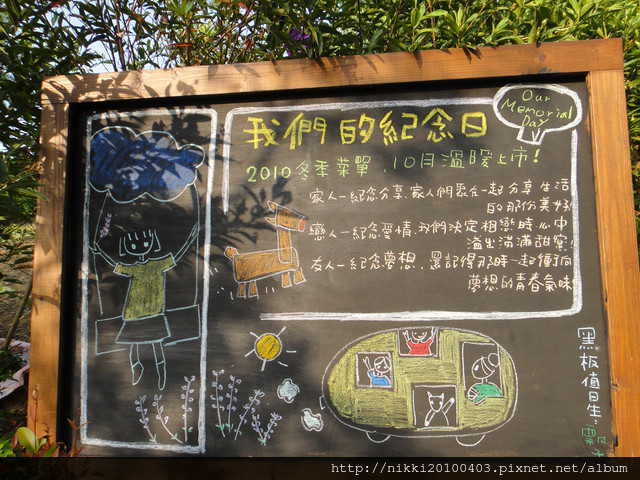 Our
Memorial
Day
我們的紀念日
2010冬季菜單.10月溫暖上市!
家人—紀念分享.家人們聚在一起分享生活
的那份美好
戀人—紀念愛情.我們決定相戀時心中
溢出滿滿甜蜜!
友人—紀念夢想.還記得那時一起衝向
夢想的青春氣味
黑板值日生:
http://nikki20100403.pixnet.net/album